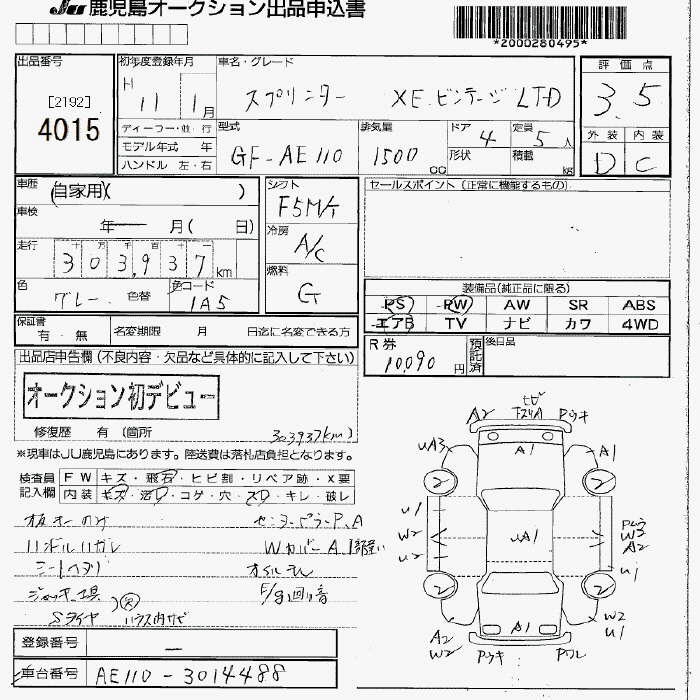 JU 鹿児島オークション出品申込書
*2000280495*
出品番号
[2192]
4015
初年度登録年月
H 11 1月
車名・グレード
スプリンター XE.ビンテージ LTD
評価点
3.5
外装 内装
D C
ディーラー・並行
モデル年式 年
ハンドル 左・右
型式
GF-AE110
排気量
1500 cc
ドア 4
形状
定員 5人
積載 kg
車歴
自家用( )
車検
年 月( 日)
走行
十 万 千 百 十 一
303,937 km
色
グレー 色替
色コード
1A5
シフト
F5M/T
冷房
A/C
燃料
G
セールスポイント (正常に機能するもの)
装備品(純正品に限る)
PS PW AW SR ABS
エアB TV ナビ カワ 4WD
保証書
有・無
名変期限 月 日迄に名変できる方
R券
10,090円
預託済
後日品
出品店申告欄 (不良内容・欠品など具体的に記入して下さい)
オークション初デビュー
修復歴 有 (箇所 303937km)
※現車はJU鹿児島にあります。陸送費は落札店負担となります。
検査員記入欄
FW キズ・飛石・ヒビ割・リペア跡・X要
内装 キズ・汚レ・コゲ・穴・スレ・キレ・破レ
センターピラーP,A
ハンドルハガレ
WカバーA
シートヘタリ
オイルモレ
ジャッキ工具
欠
E/g回り音
Sタイヤ ハウス内サビ
登録番号
—
車台番号
AE110-3014488
A2
Pウキ
UA3
A1
A1
2
2
U1
W2
U2
UA1
W3
A2
U1
2
2
A2
W2
A1
W2
U1
Pウキ
Pワレ